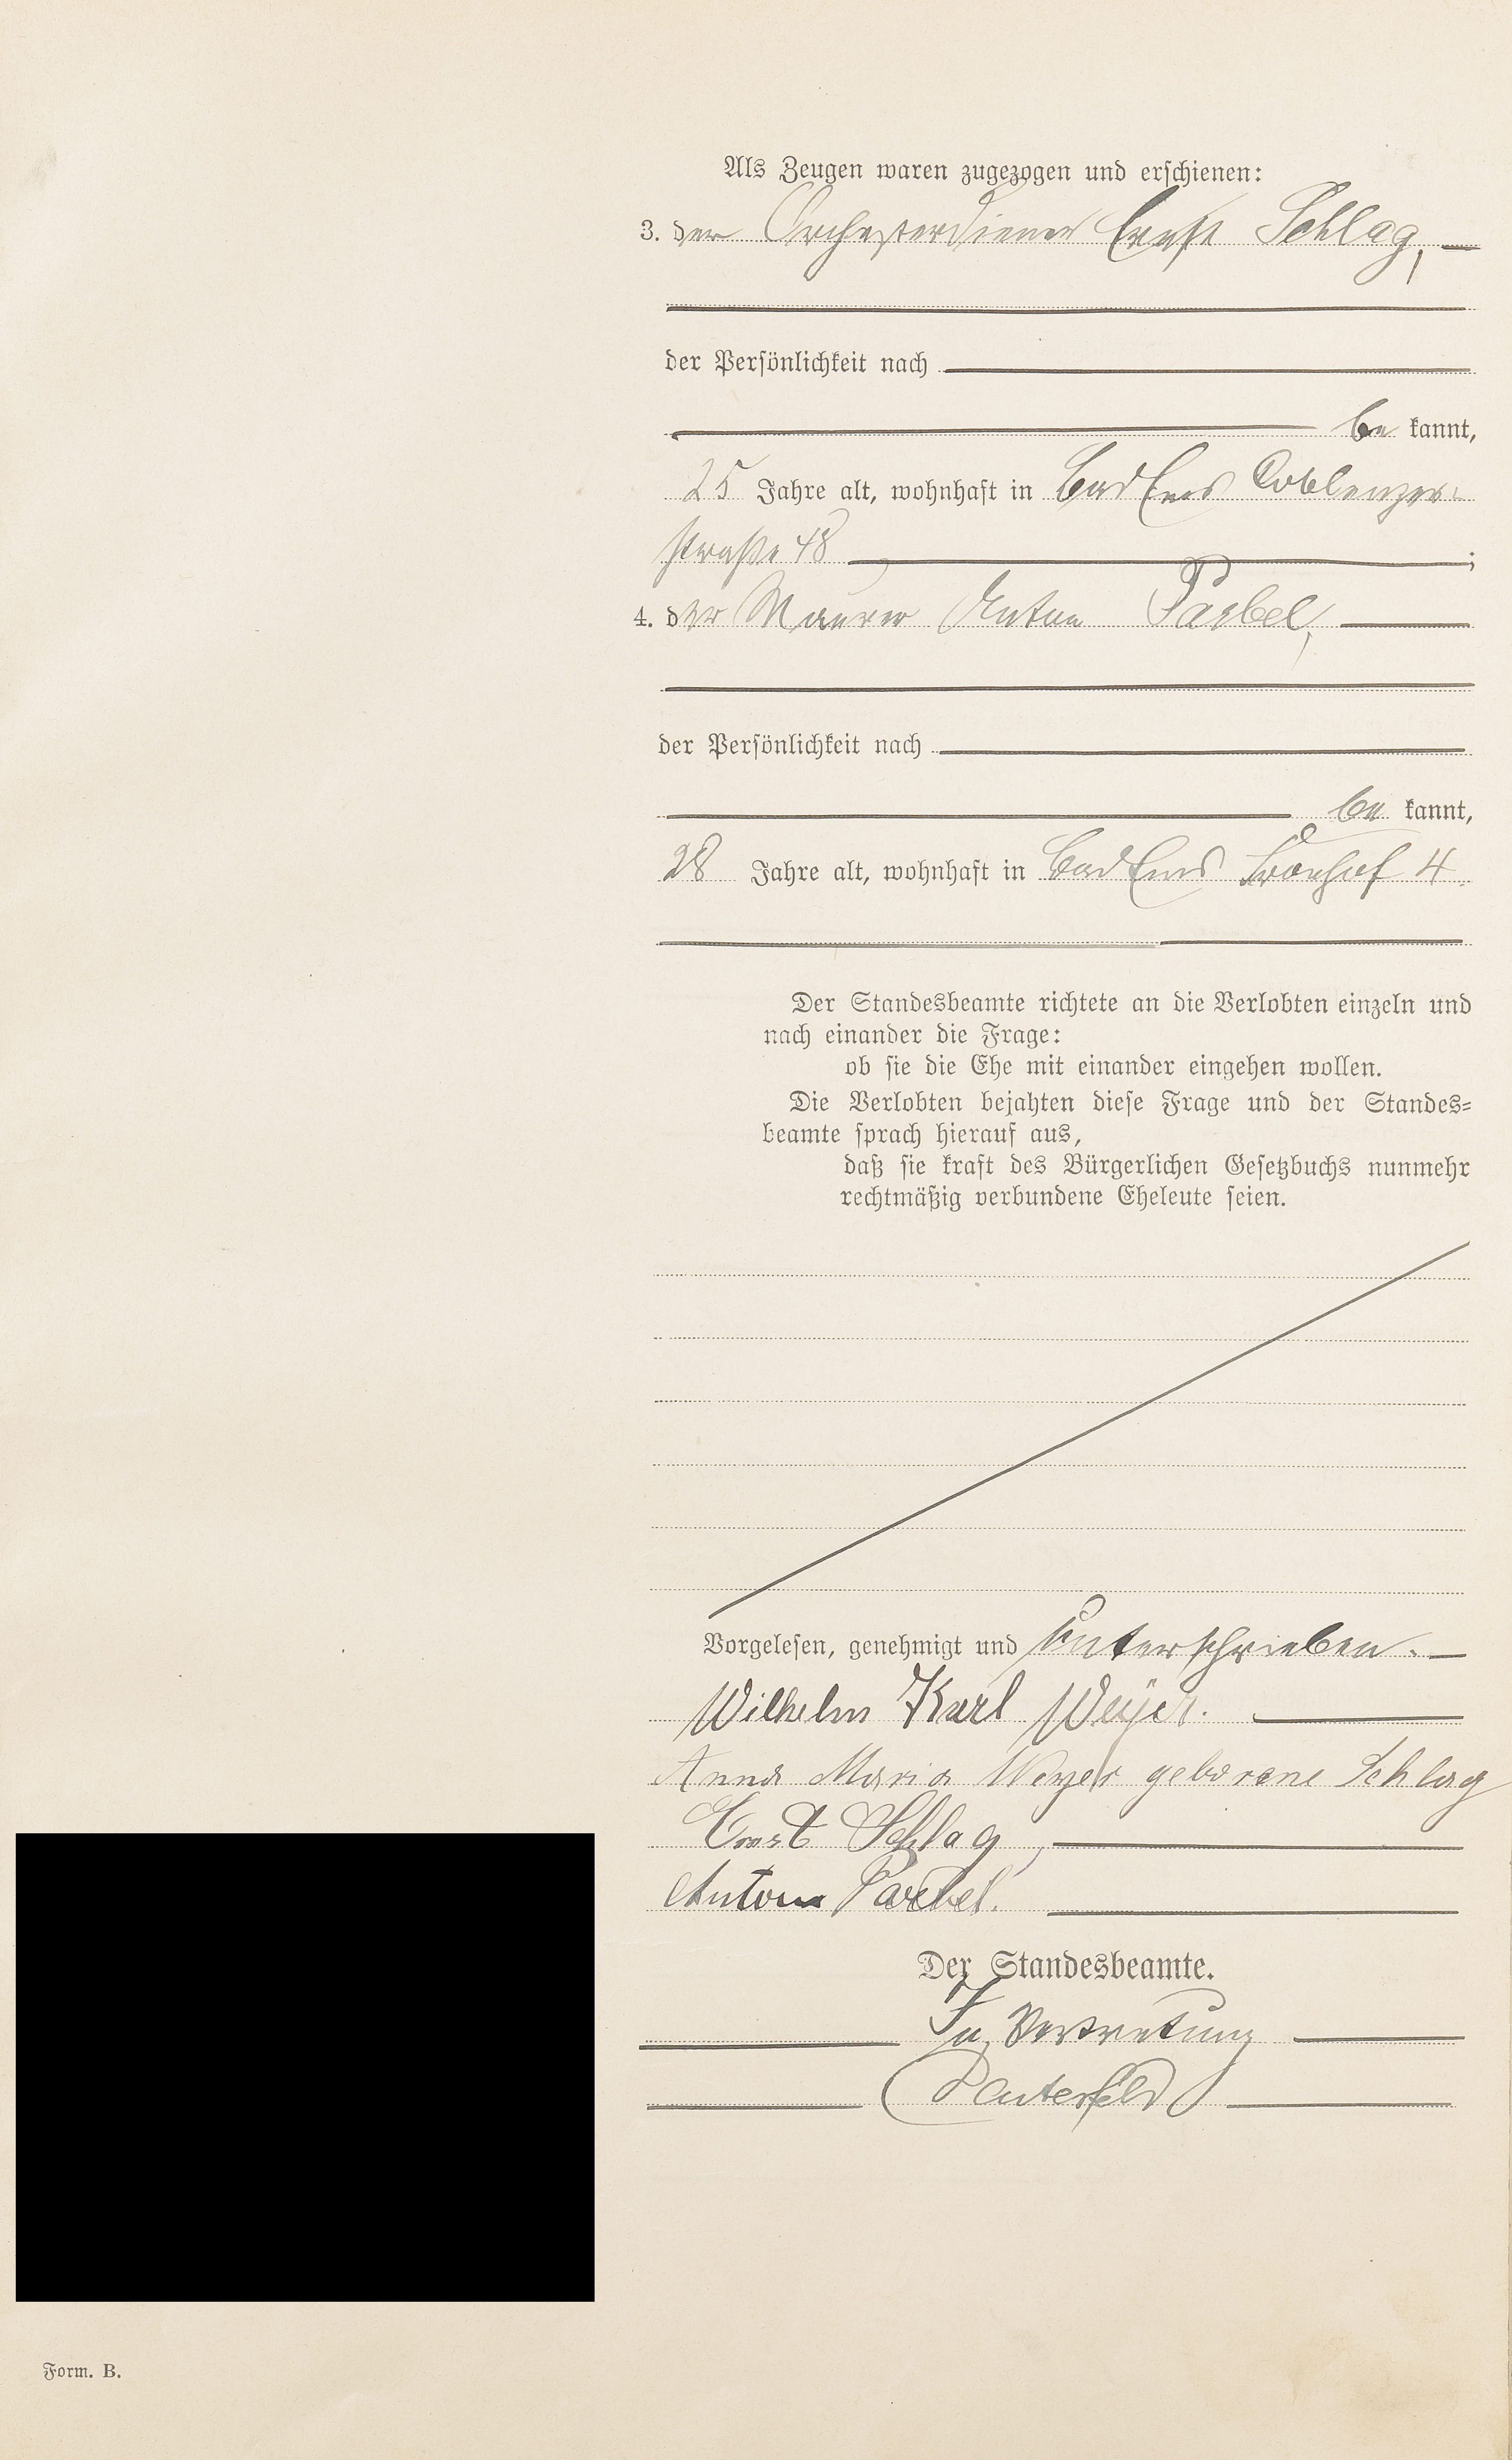 Als Zeugen waren zugezogen und erschienen:
3. der Orchesterdiener Ernst Schlag,
der Persönlichkeit nach
be kannt,
25 Jahre alt, wohnhaft in Bad Ems Coblenzer-
straße 48
4. der Maurer Anton Paebel,
der Persönlichkeit nach
be kannt,
28 Jahre alt, wohnhaft in Bad Ems Fronhof 4
Der Standesbeamte richtete an die Verlobten einzeln und
nach einander die Frage:
ob sie die Ehe mit einander eingehen wollen.
Die Verlobten bejahten diese Frage und der Standes-
beamte sprach hierauf aus,
daß sie kraft des Bürgerlichen Gesetzbuchs nunmehr
rechtmäßig verbundene Eheleute seien.
Vorgelesen, genehmigt und unterschrieben.
Wilhelm Karl Weyer.
Anna Maria Weyer geborene Schlag
Ernst Schlag
Anton Paebel.
Der Standesbeamte.
In Vertretung
Form. B.